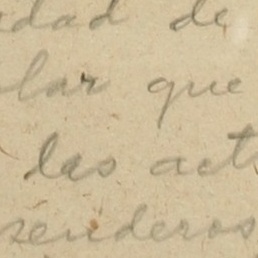 dad de
lar que
las act
senderos